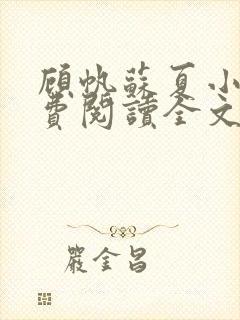 顧帆蘇夏小
費閱讀全文
嚴金昌